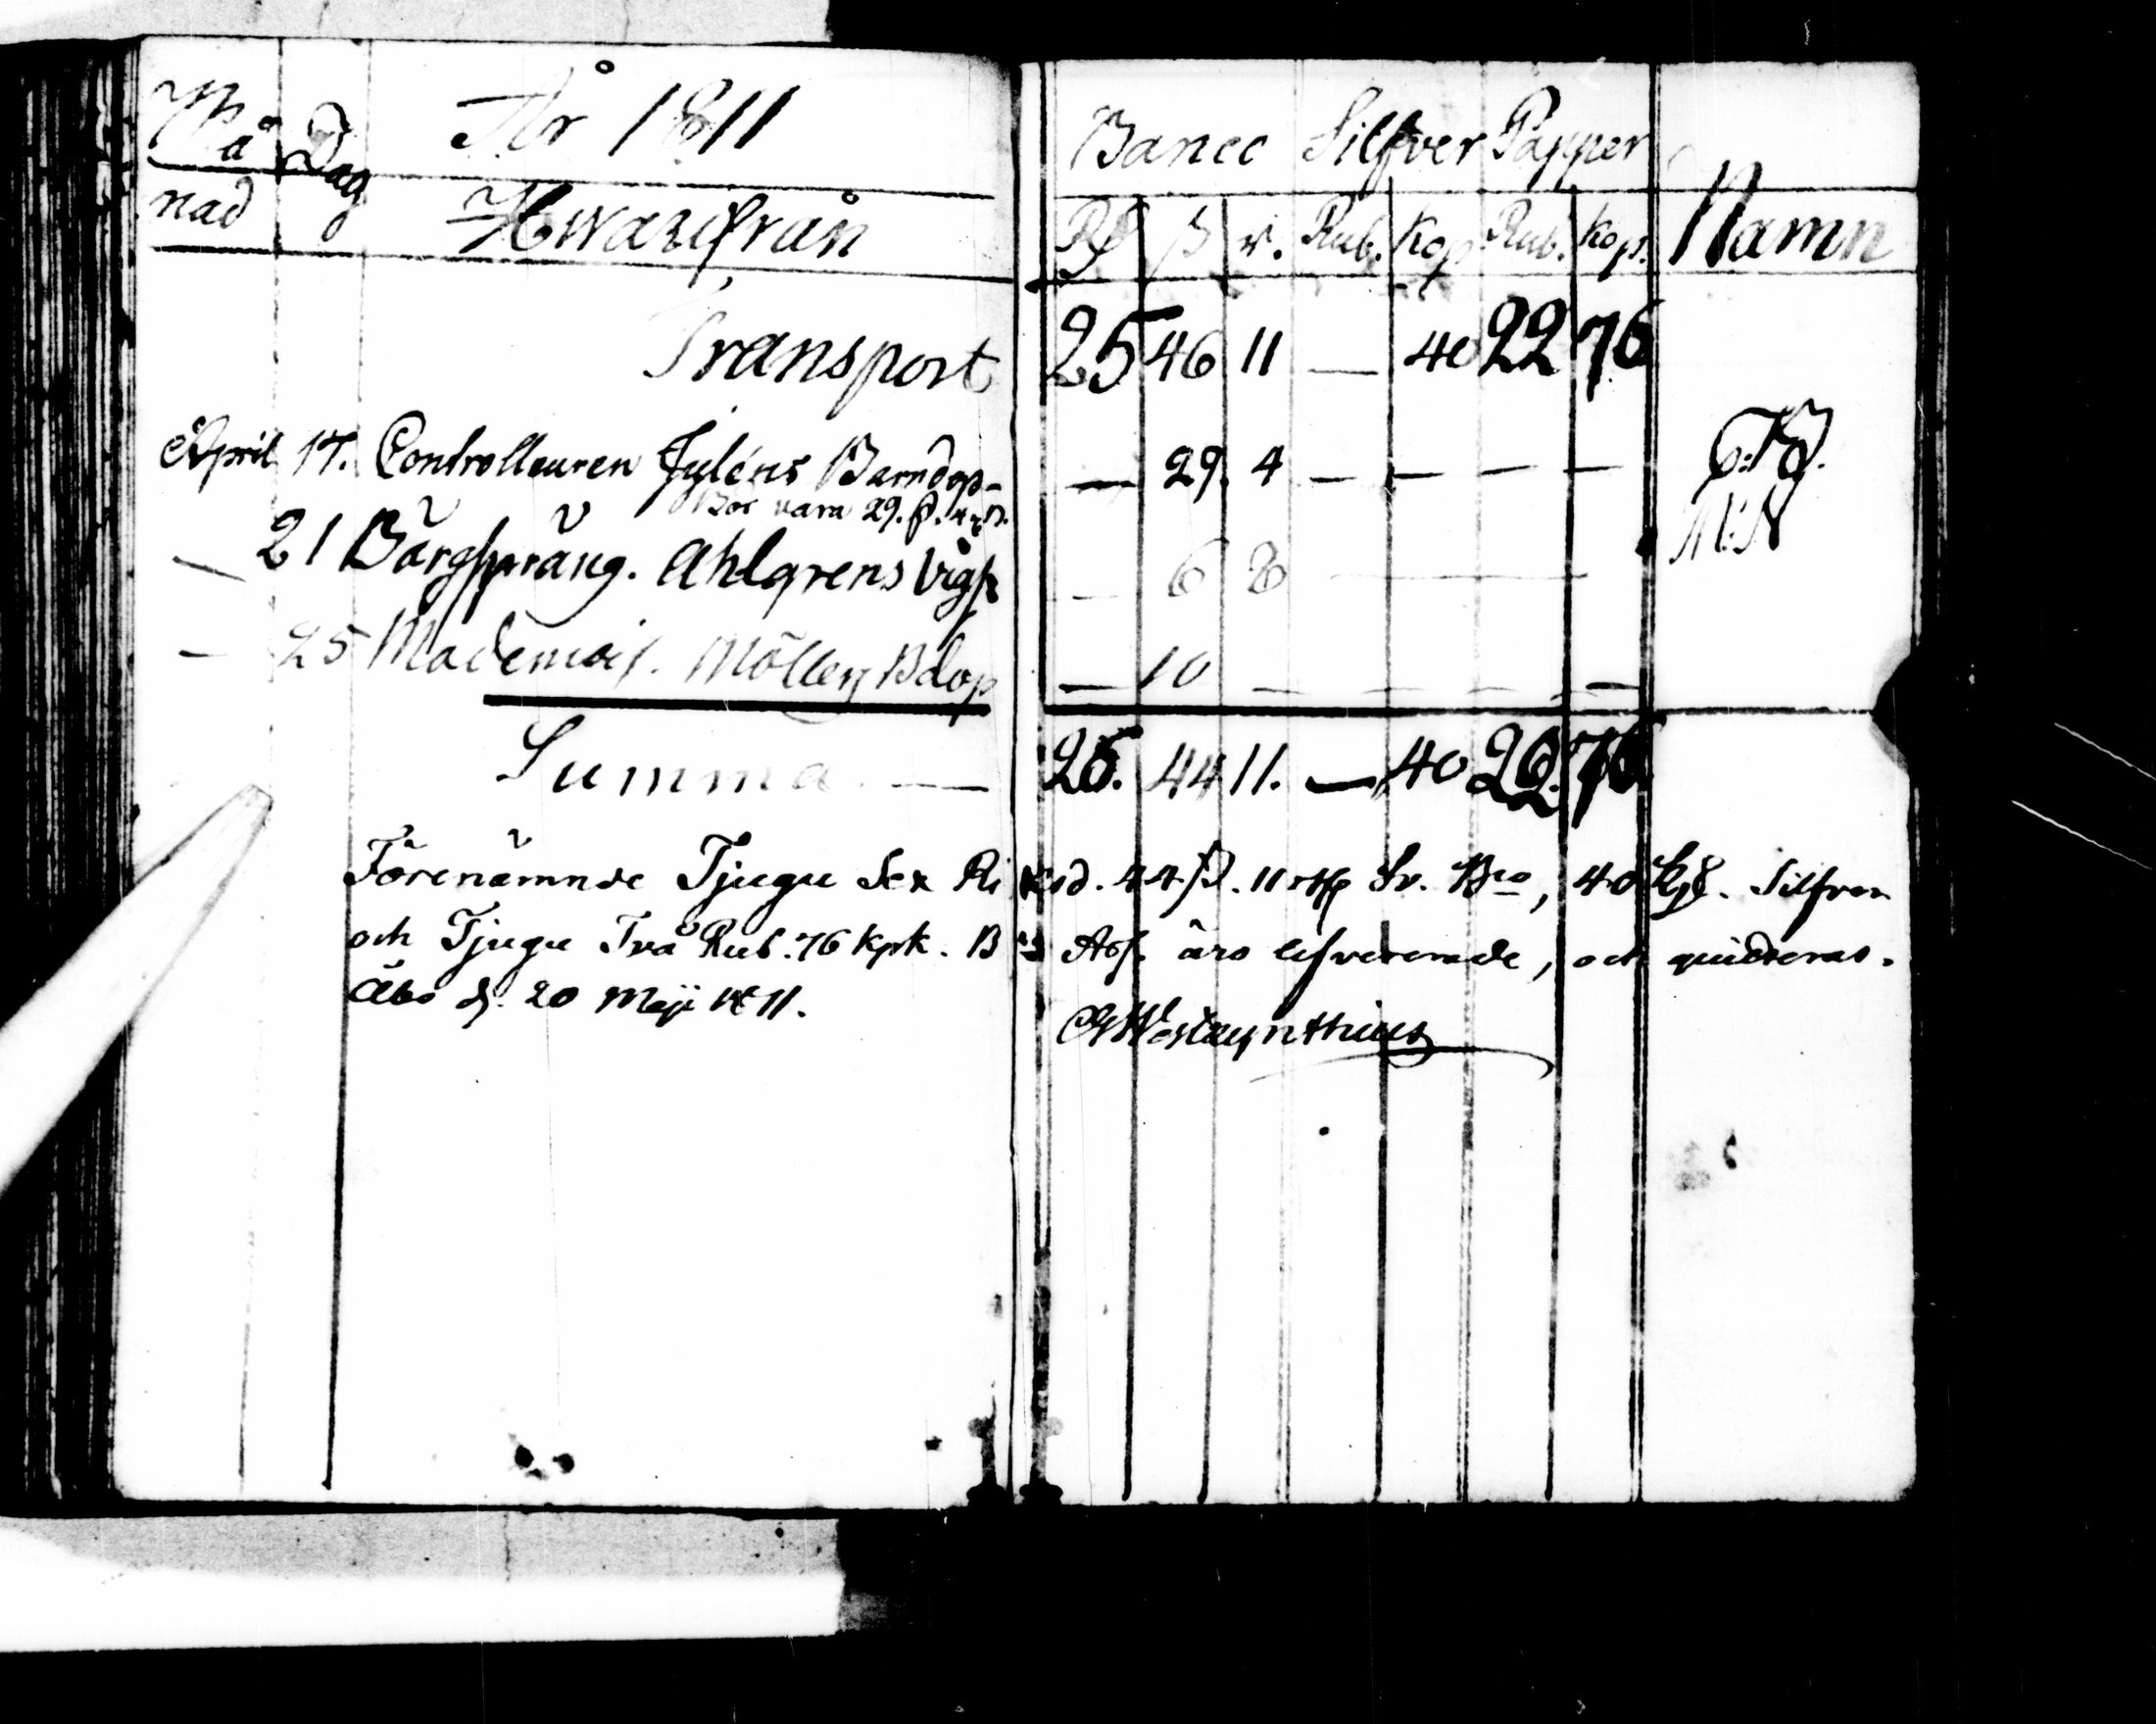 Må Dag År 1811 Banco Silfver Papper
nad Hwarifrån Rd ß r. Rub. Kop Rub. Kop. Namn
Transport 25 46 11 — 40 22 76
April 17. Controlleuren Juléns Barndop — 29. 4 — — — —
Bör vara 29. ß. 4 r.
— 21 Bärgspräng. Ahlgrens Vigs — 6 8 M:N
— 25 Mademois. Möllers Bdop — 10 — — — — —
Summa — 26. 44 11. — 40 22. 76
Förenämnde Tjugu Sex Riksd. 44 ß. 11 rst Sv. Bco, 40 Silfver
och Tjugu Två Rub. 76 Kpk. B Ass. äro lefvererade, och quitteras.
Åbo d. 20 Maji 1811.